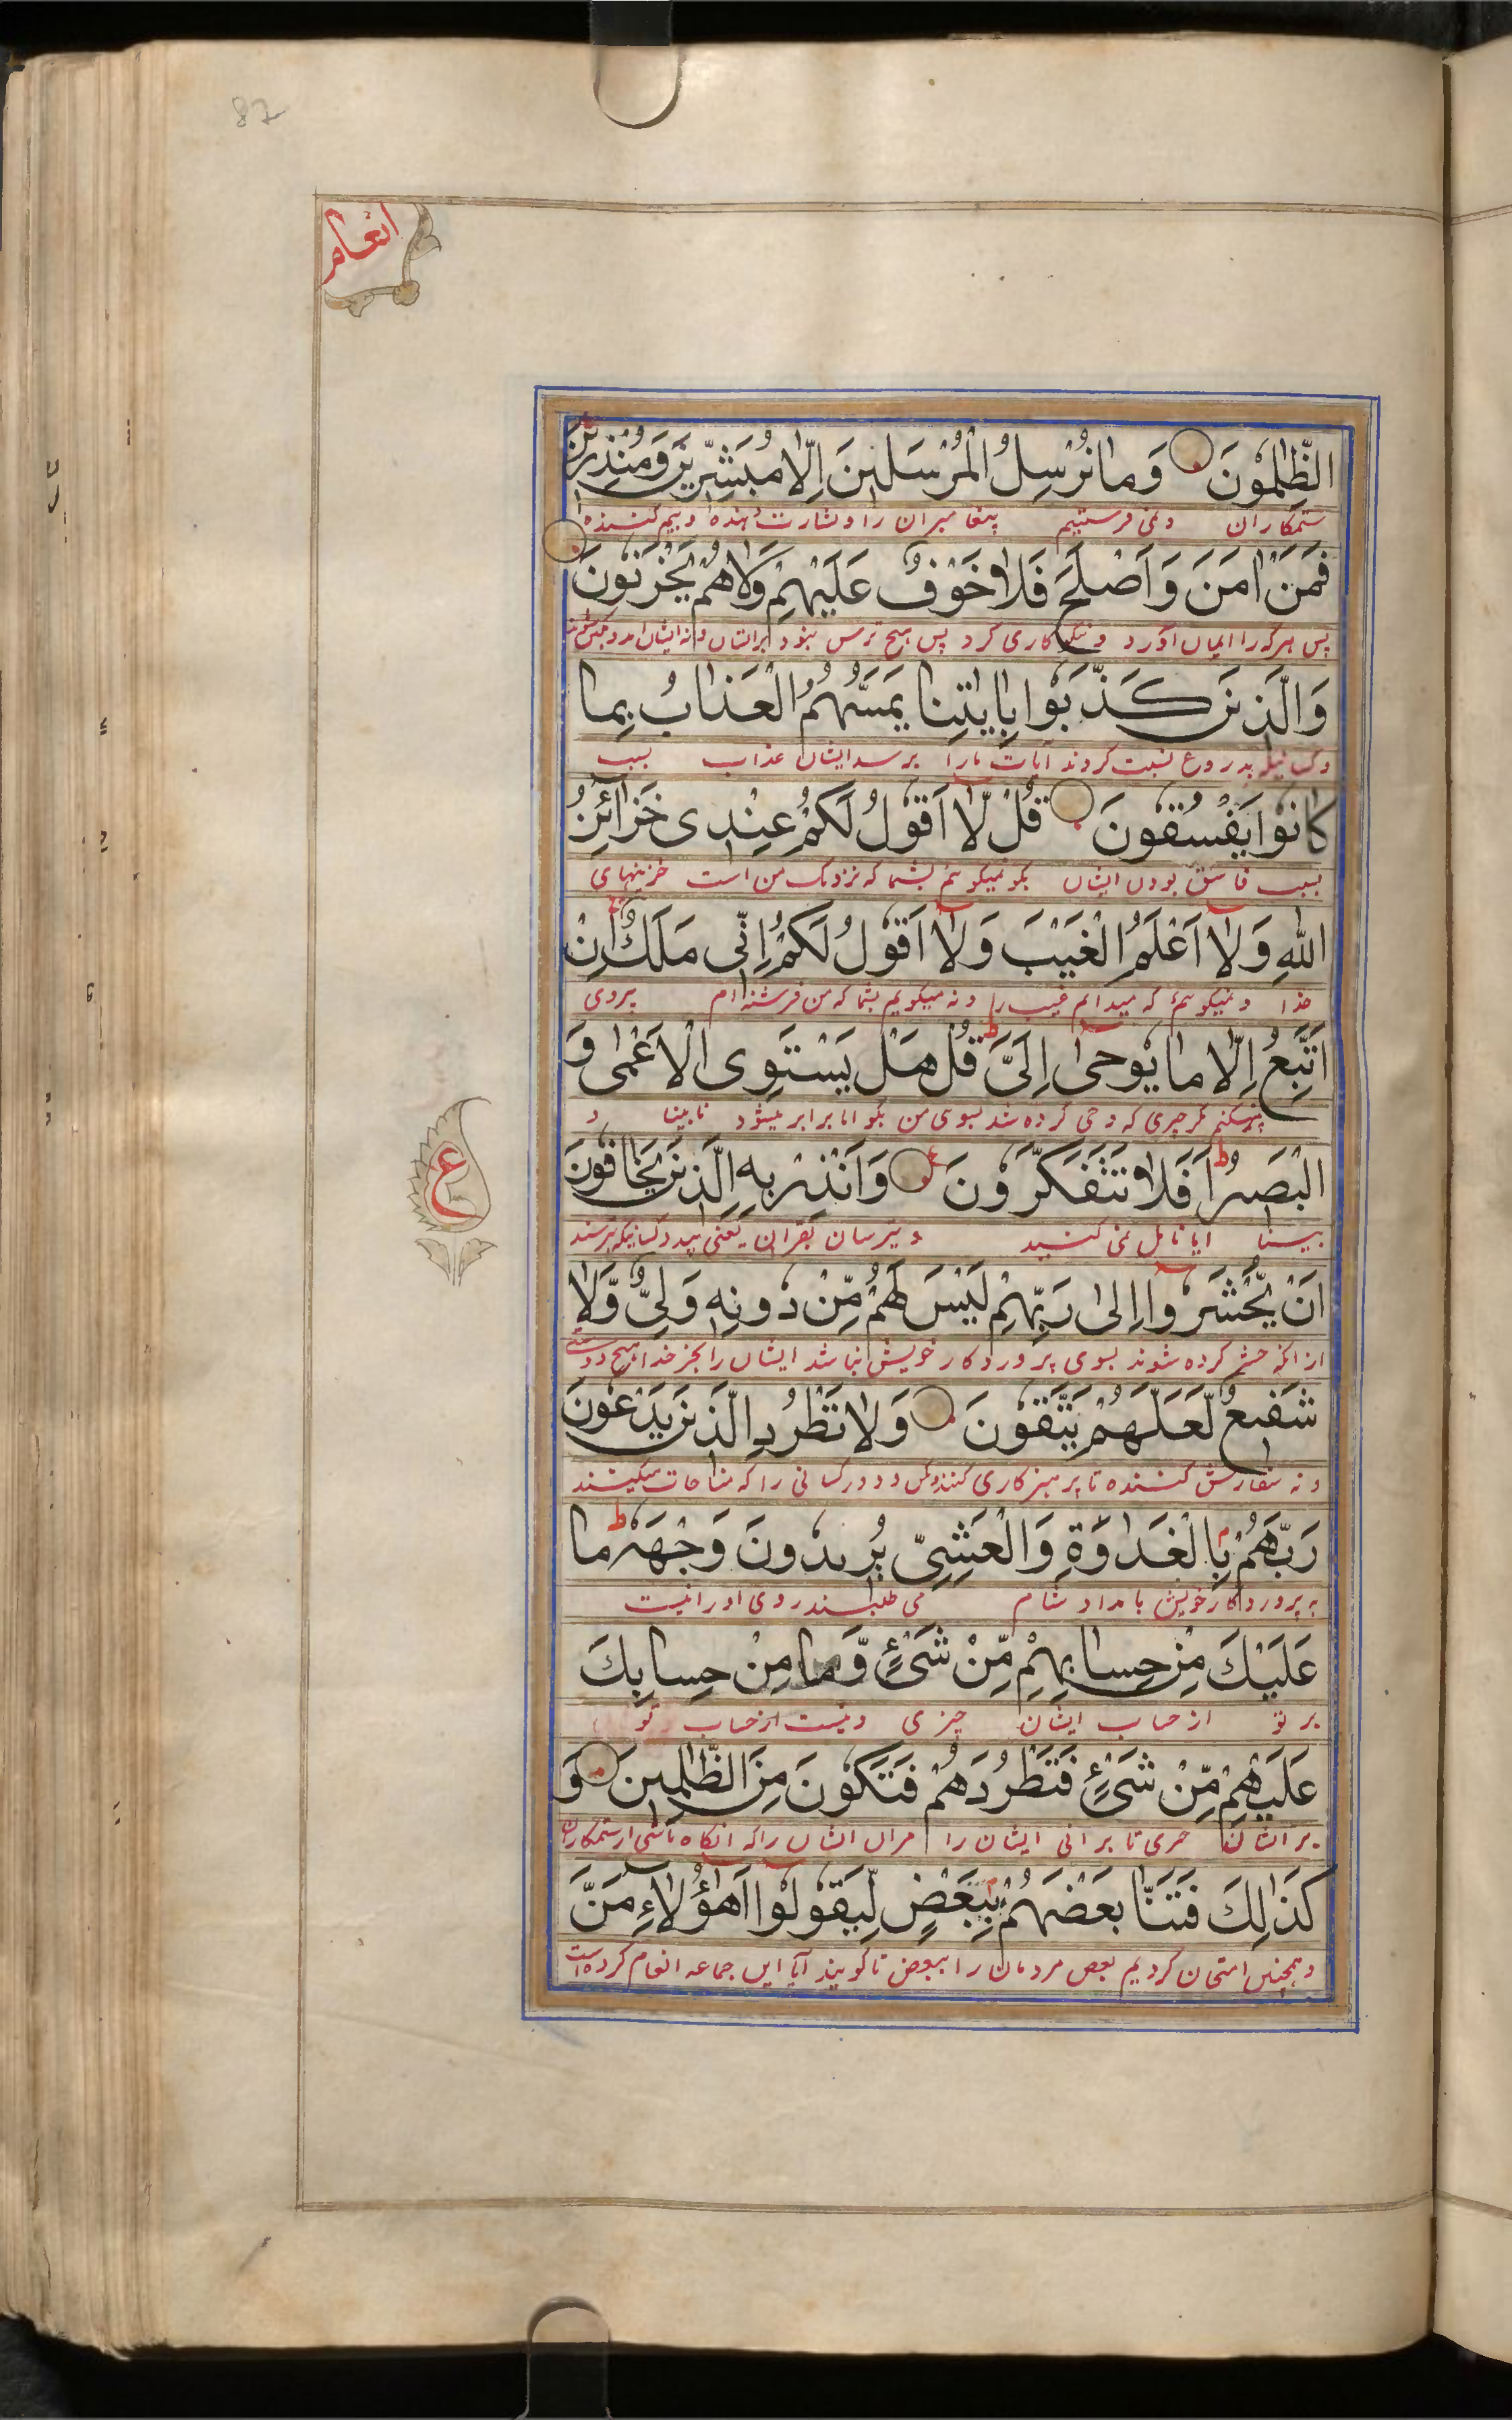 87
انعام
الظّٰلِمُوْنَ وَمَا نُرْسِلُ الْمُرْسَلِیْنَ اِلَّا مُبَشِّرِیْنَ وَمُنْذِرِیْنَ
ستمکاران و نمی فرستیم پیغامبران را و بشارت دهنده و بیم کننده
فَمَنْ اٰمَنَ وَاَصْلَحَ فَلَا خَوْفٌ عَلَیْهِمْ وَلَا هُمْ یَحْزَنُوْنَ
پس هرکه را ایمان آورد و نیکو کاری کرد پس هیچ ترس نبود برایشان و نه ایشان
وَالَّذِیْنَ كَذَّبُوْا بِاٰیٰتِنَا یَمَسُّهُمُ الْعَذَابُ بِمَا
و کسانیکه بدروغ نسبت کردند آیات ما را برسد ایشان عذاب بسبب
كَانُوْا یَفْسُقُوْنَ قُلْ لَّا اَقُوْلُ لَكُمْ عِنْدِیْ خَزَآئِنُ
بسبب فاسق بودن ایشان بکو نمیکویم بشما که نزدیک من است خزینهای
اللّٰهِ وَلَا اَعْلَمُ الْغَیْبَ وَلَا اَقُوْلُ لَكُمْ اِنِّیْ مَلَكٌ اِنْ
خدا و نمیکویم که میدانم غیب را و نه میکویم بشما که من فرشته ام پیروی
اَتَّبِعُ اِلَّا مَا یُوْحٰی اِلَیَّ ط قُلْ هَلْ یَسْتَوِی الْاَعْمٰی وَ
نمیکنم مکر چیزی که وحی کرده شد بسوی من بکو ایا برابر میشود نابینا و
الْبَصِیْرُ ط اَفَلَا تَتَفَكَّرُوْنَ وَاَنْذِرْ بِهِ الَّذِیْنَ یَخَافُوْنَ
بینا ایا تامل نمی کنید و بترسان بقران یعنی کسانیکه بترسند
ع
اَنْ یُّحْشَرُوْا اِلٰی رَبِّهِمْ لَیْسَ لَهُمْ مِّنْ دُوْنِهٖ وَلِیٌّ وَّلَا
از انکه حشر کرده شوند بسوی پروردکار خویش نباشد ایشان را بجز خدا هیچ دوستی
شَفِیْعٌ لَّعَلَّهُمْ یَتَّقُوْنَ وَلَا تَطْرُدِ الَّذِیْنَ یَدْعُوْنَ
و نه سفارش کننده تا پرهیزکاری کنند و مکن دور کسانی را که مناجات میکنند
رَبَّهُمْ بِالْغَدٰوةِ وَالْعَشِیِّ یُرِیْدُوْنَ وَجْهَهٗ ط مَا
به پروردکار خویش بامداد و شام می طلبند روی او را نیست
عَلَیْكَ مِنْ حِسَابِهِمْ مِّنْ شَیْءٍ وَّمَا مِنْ حِسَابِكَ
بر تو از حساب ایشان چیزی و نیست از حساب تو
عَلَیْهِمْ مِّنْ شَیْءٍ فَتَطْرُدَهُمْ فَتَكُوْنَ مِنَ الظّٰلِمِیْنَ وَ
بر ایشان چیزی تا برانی ایشان را مران ایشان را که انکاه باشی از ستمکاران
كَذٰلِكَ فَتَنَّا بَعْضَهُمْ بِبَعْضٍ لِّیَقُوْلُوْا اَهٰٓؤُلَآءِ مَنَّ
و همچنین امتحان کردیم بعض مردمان را ببعض تا کویند آیا این جماعه انعام کرده است